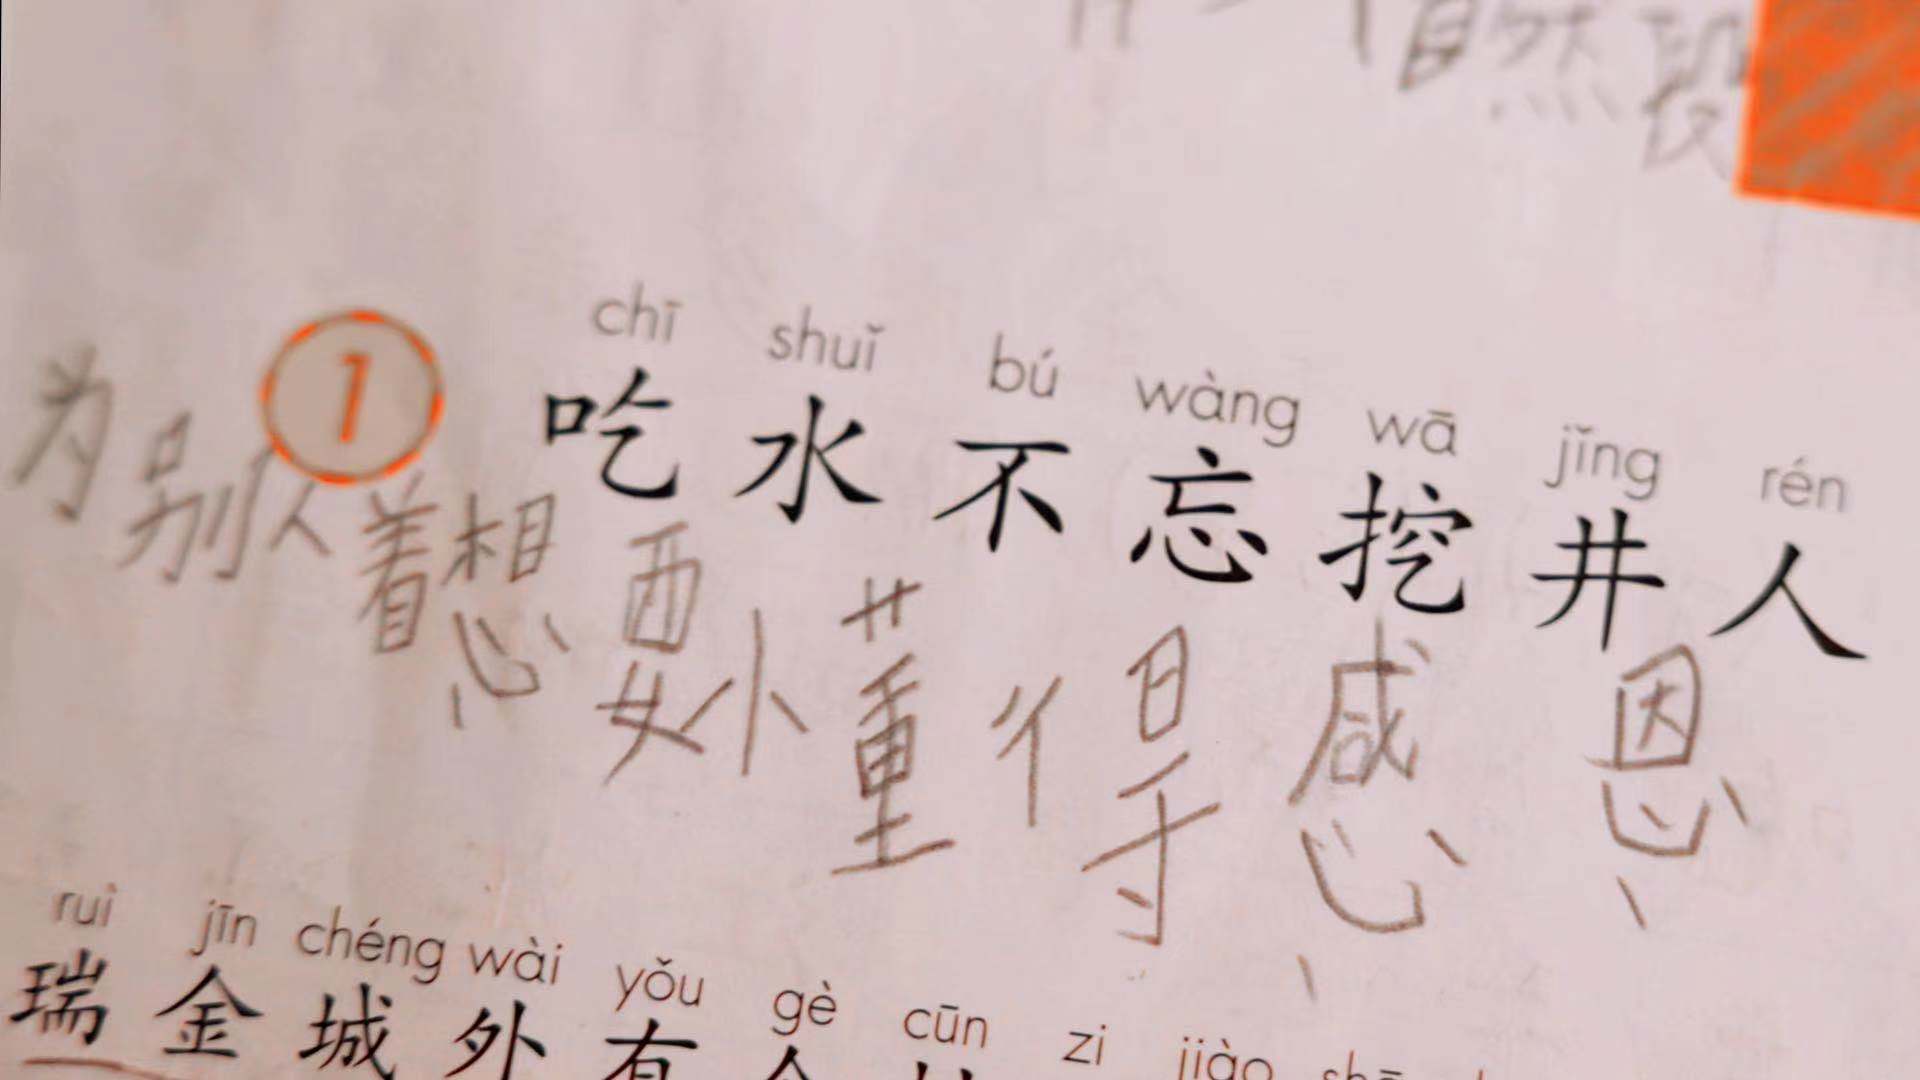 自然段
1
chī shuǐ bú wàng wā jǐng rén
吃水不忘挖井人
为别人着想要懂得感恩
ruì jīn chéng wài yǒu gè cūn zi jiào
瑞金城外有个